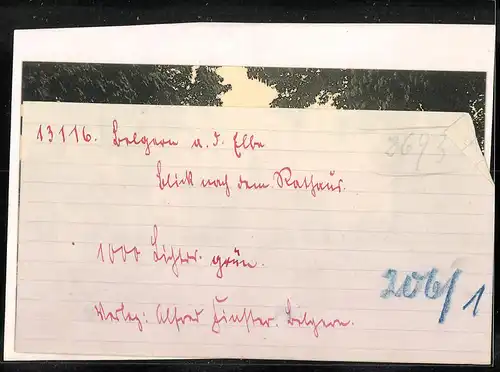 13116. Belgern a. d. Elbe
2693
Blick nach dem Rathaus.
1000 Lichtdr. grün.
206/1
Verlag: Alfred Finster. Belgern.